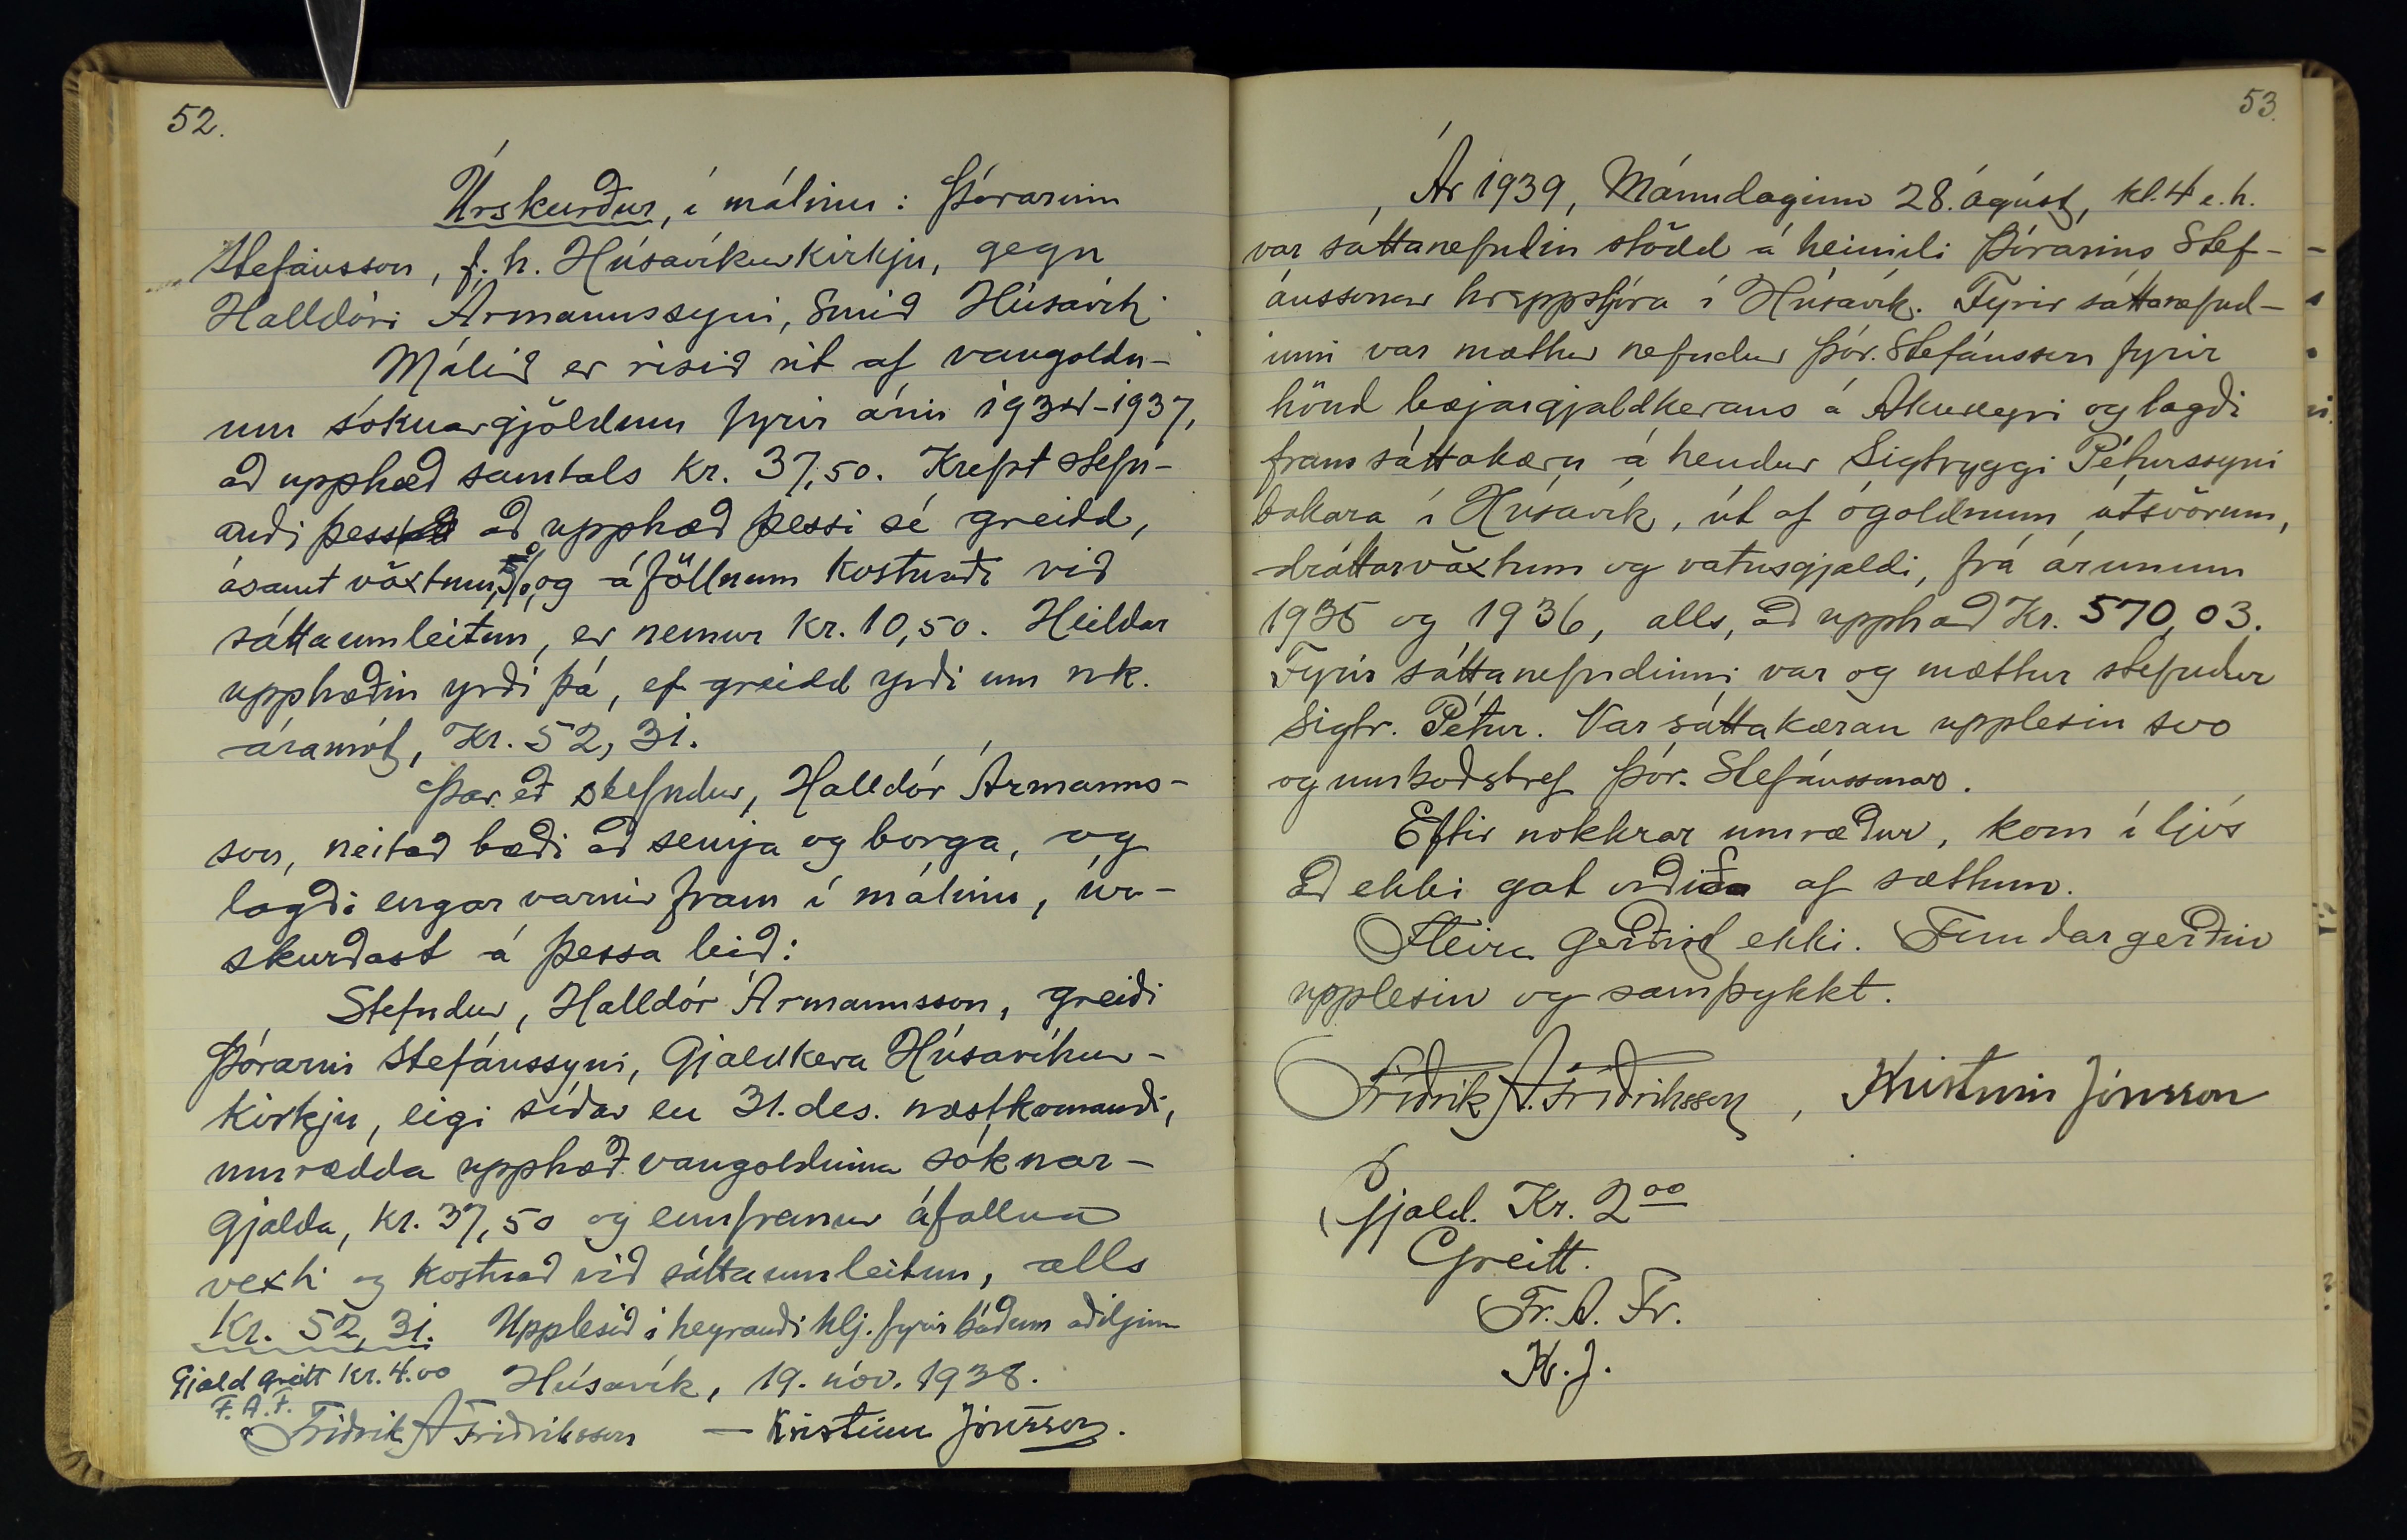 52.
Úrskurður, í málinu: Þórarinn
Stefánsson, f. h. Húsavíkurkirkju, gegn
Halldóri Ármannssyni, Smið Húsavík.
Málið er risið út af vangoldn-
um sóknargjöldum fyrir árin 1934-1937,
að upphæð samtals kr. 37,50. Krefst stefn-
andi þess að upphæð þessi sé greidd,
ásamt vöxtum, 5%, og áföllnum kostnaði við
sáttaumleitun, er nemur kr. 10,50. Heildar
upphæðin yrði þá, ef greidd yrði um nk.
áramót, Kr. 52,31.
Þar eð stefndur, Halldór Ármanns-
son, neitað bæði að semja og borga, og
lagði engar varnir fram í málinu, úr-
skurðast á þessa leið:
Stefndur, Halldór Ármannsson, greiði
Þórarni Stefánssyni, Gjaldkera Húsavíkur-
kirkju, eigi síðar en 31. des. næstkomandi,
umrædda upphæð vangoldinna sóknar-
gjalda, kr. 37,50 og ennfremur áfallna
vexti og kostnað við sáttaumleitun, alls
Kr. 52,31. Upplesið í heyranda hlj. fyrir báðum aðiljum
Gjald greitt kr. 4.00 Húsavík, 19. nóv. 1938.
F. A. F.
Friðrik A Friðriksson — Kristinn Jónsson.
53.
Ár 1939, Mánudaginn 28. ágúst, kl. 4 e. h.
var sáttanefndin stödd á heimili Þórarins Stef-
ánssonar hreppstjóra í Húsavík. Fyrir sáttanefnd-
inni var mættur nefndur Þór. Stefánsson fyrir
hönd bæjargjaldkerans á Akureyri og lagði
fram sáttakæru á hendur Sigtryggi Péturssyni
bakara í Húsavík, út af ógoldnum útsvörum,
dráttarvöxtum og vatnsgjaldi, frá árunum
1935 og 1936, alls, að upphæð Kr. 570,03.
Fyrir sáttanefndinni var og mættur stefndur
Sigtr. Pétur. Var sáttakæran upplesin svo
og umboðsbréf Þór. Stefánssonar.
Eftir nokkrar umræður, kom í ljós
að ekki gat orðið af sættum.
Fleira gerðist ekki. Fundargerðin
upplesin og samþykkt.
Friðrik A. Friðriksson, Kristinn Jónsson
Gjald. Kr. 2 00
Greitt.
Fr. A. Fr.
K. J.